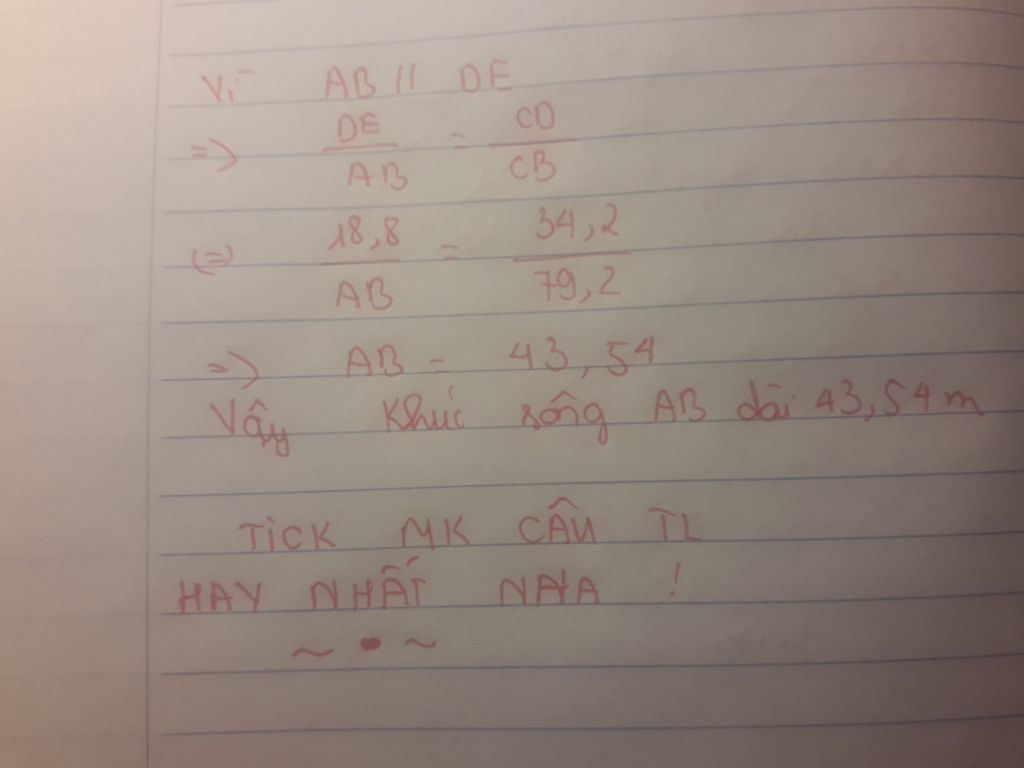 Vì AB // DE
=> DE/AB = CD/CB
<=> 18,8/AB = 34,2/79,2
=> AB = 43,54
Vậy Khúc sông AB dài 43,54 m
TICK MK CÂU TL
HAY NHẤT NHA !
~ • ~